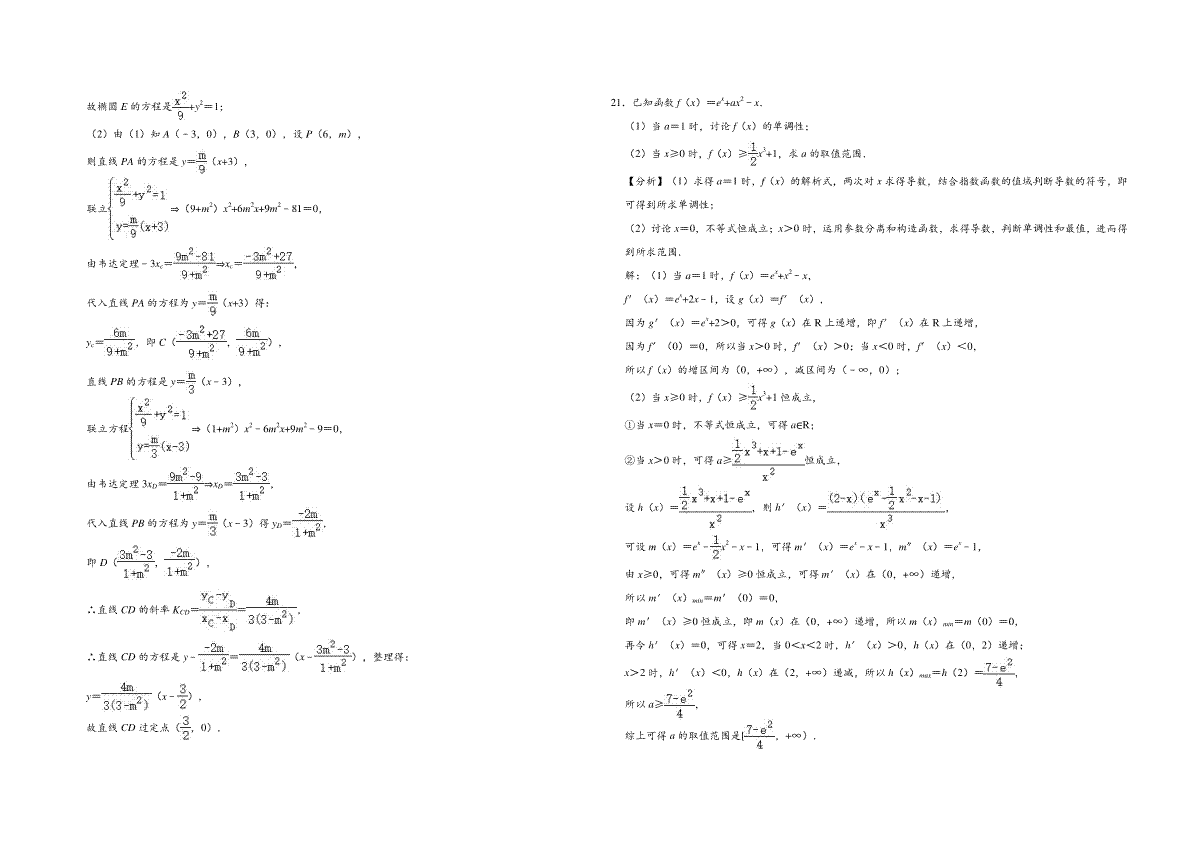 故椭圆E的方程是x²/9+y²=1；
（2）由（1）知A（﹣3，0），B（3，0），设P（6，m），
则直线PA的方程是y=m/9（x+3），
联立{x²/9+y²=1 y=m/9(x+3)⇒（9+m²）x²+6m²x+9m²﹣81=0，
由韦达定理﹣3x_c=(9m²-81)/(9+m²)⇒x_c=(-3m²+27)/(9+m²)，
代入直线PA的方程为y=m/9（x+3）得：
y_c=6m/(9+m²)，即C（(-3m²+27)/(9+m²)，6m/(9+m²)），
直线PB的方程是y=m/3（x﹣3），
联立方程{x²/9+y²=1 y=m/3(x-3)⇒（1+m²）x²﹣6m²x+9m²﹣9=0，
由韦达定理3x_D=(9m²-9)/(1+m²)⇒x_D=(3m²-3)/(1+m²)，
代入直线PB的方程为y=m/3（x﹣3）得y_D=-2m/(1+m²)，
即D（(3m²-3)/(1+m²)，-2m/(1+m²)），
∴直线CD的斜率K_CD=(y_C-y_D)/(x_C-x_D)=4m/(3(3-m²))，
∴直线CD的方程是y﹣-2m/(1+m²)=4m/(3(3-m²))（x﹣(3m²-3)/(1+m²)），整理得：
y=4m/(3(3-m²))（x﹣3/2），
故直线CD过定点（3/2，0）．
21．已知函数f（x）=eˣ+ax²﹣x．
（1）当a=1时，讨论f（x）的单调性；
（2）当x≥0时，f（x）≥1/2x³+1，求a的取值范围．
【分析】（1）求得a=1时，f（x）的解析式，两次对x求得导数，结合指数函数的值域判断导数的符号，即
可得到所求单调性；
（2）讨论x=0，不等式恒成立；x>0时，运用参数分离和构造函数，求得导数，判断单调性和最值，进而得
到所求范围．
解：（1）当a=1时，f（x）=eˣ+x²﹣x，
f′（x）=eˣ+2x﹣1，设g（x）=f′（x），
因为g′（x）=eˣ+2>0，可得g（x）在R上递增，即f′（x）在R上递增，
因为f′（0）=0，所以当x>0时，f′（x）>0；当x<0时，f′（x）<0，
所以f（x）的增区间为（0，+∞），减区间为（﹣∞，0）；
（2）当x≥0时，f（x）≥1/2x³+1恒成立，
①当x=0时，不等式恒成立，可得a∈R；
②当x>0时，可得a≥(1/2x³+x+1-eˣ)/x²恒成立，
设h（x）=(1/2x³+x+1-eˣ)/x²，则h′（x）=(2-x)(eˣ-1/2x²-x-1)/x³，
可设m（x）=eˣ﹣1/2x²﹣x﹣1，可得m′（x）=eˣ﹣x﹣1，m″（x）=eˣ﹣1，
由x≥0，可得m″（x）≥0恒成立，可得m′（x）在（0，+∞）递增，
所以m′（x）min=m′（0）=0，
即m′（x）≥0恒成立，即m（x）在（0，+∞）递增，所以m（x）min=m（0）=0，
再令h′（x）=0，可得x=2，当0<x<2时，h′（x）>0，h（x）在（0，2）递增；
x>2时，h′（x）<0，h（x）在（2，+∞）递减，所以h（x）max=h（2）=(7-e²)/4，
所以a≥(7-e²)/4，
综上可得a的取值范围是[(7-e²)/4，+∞）．